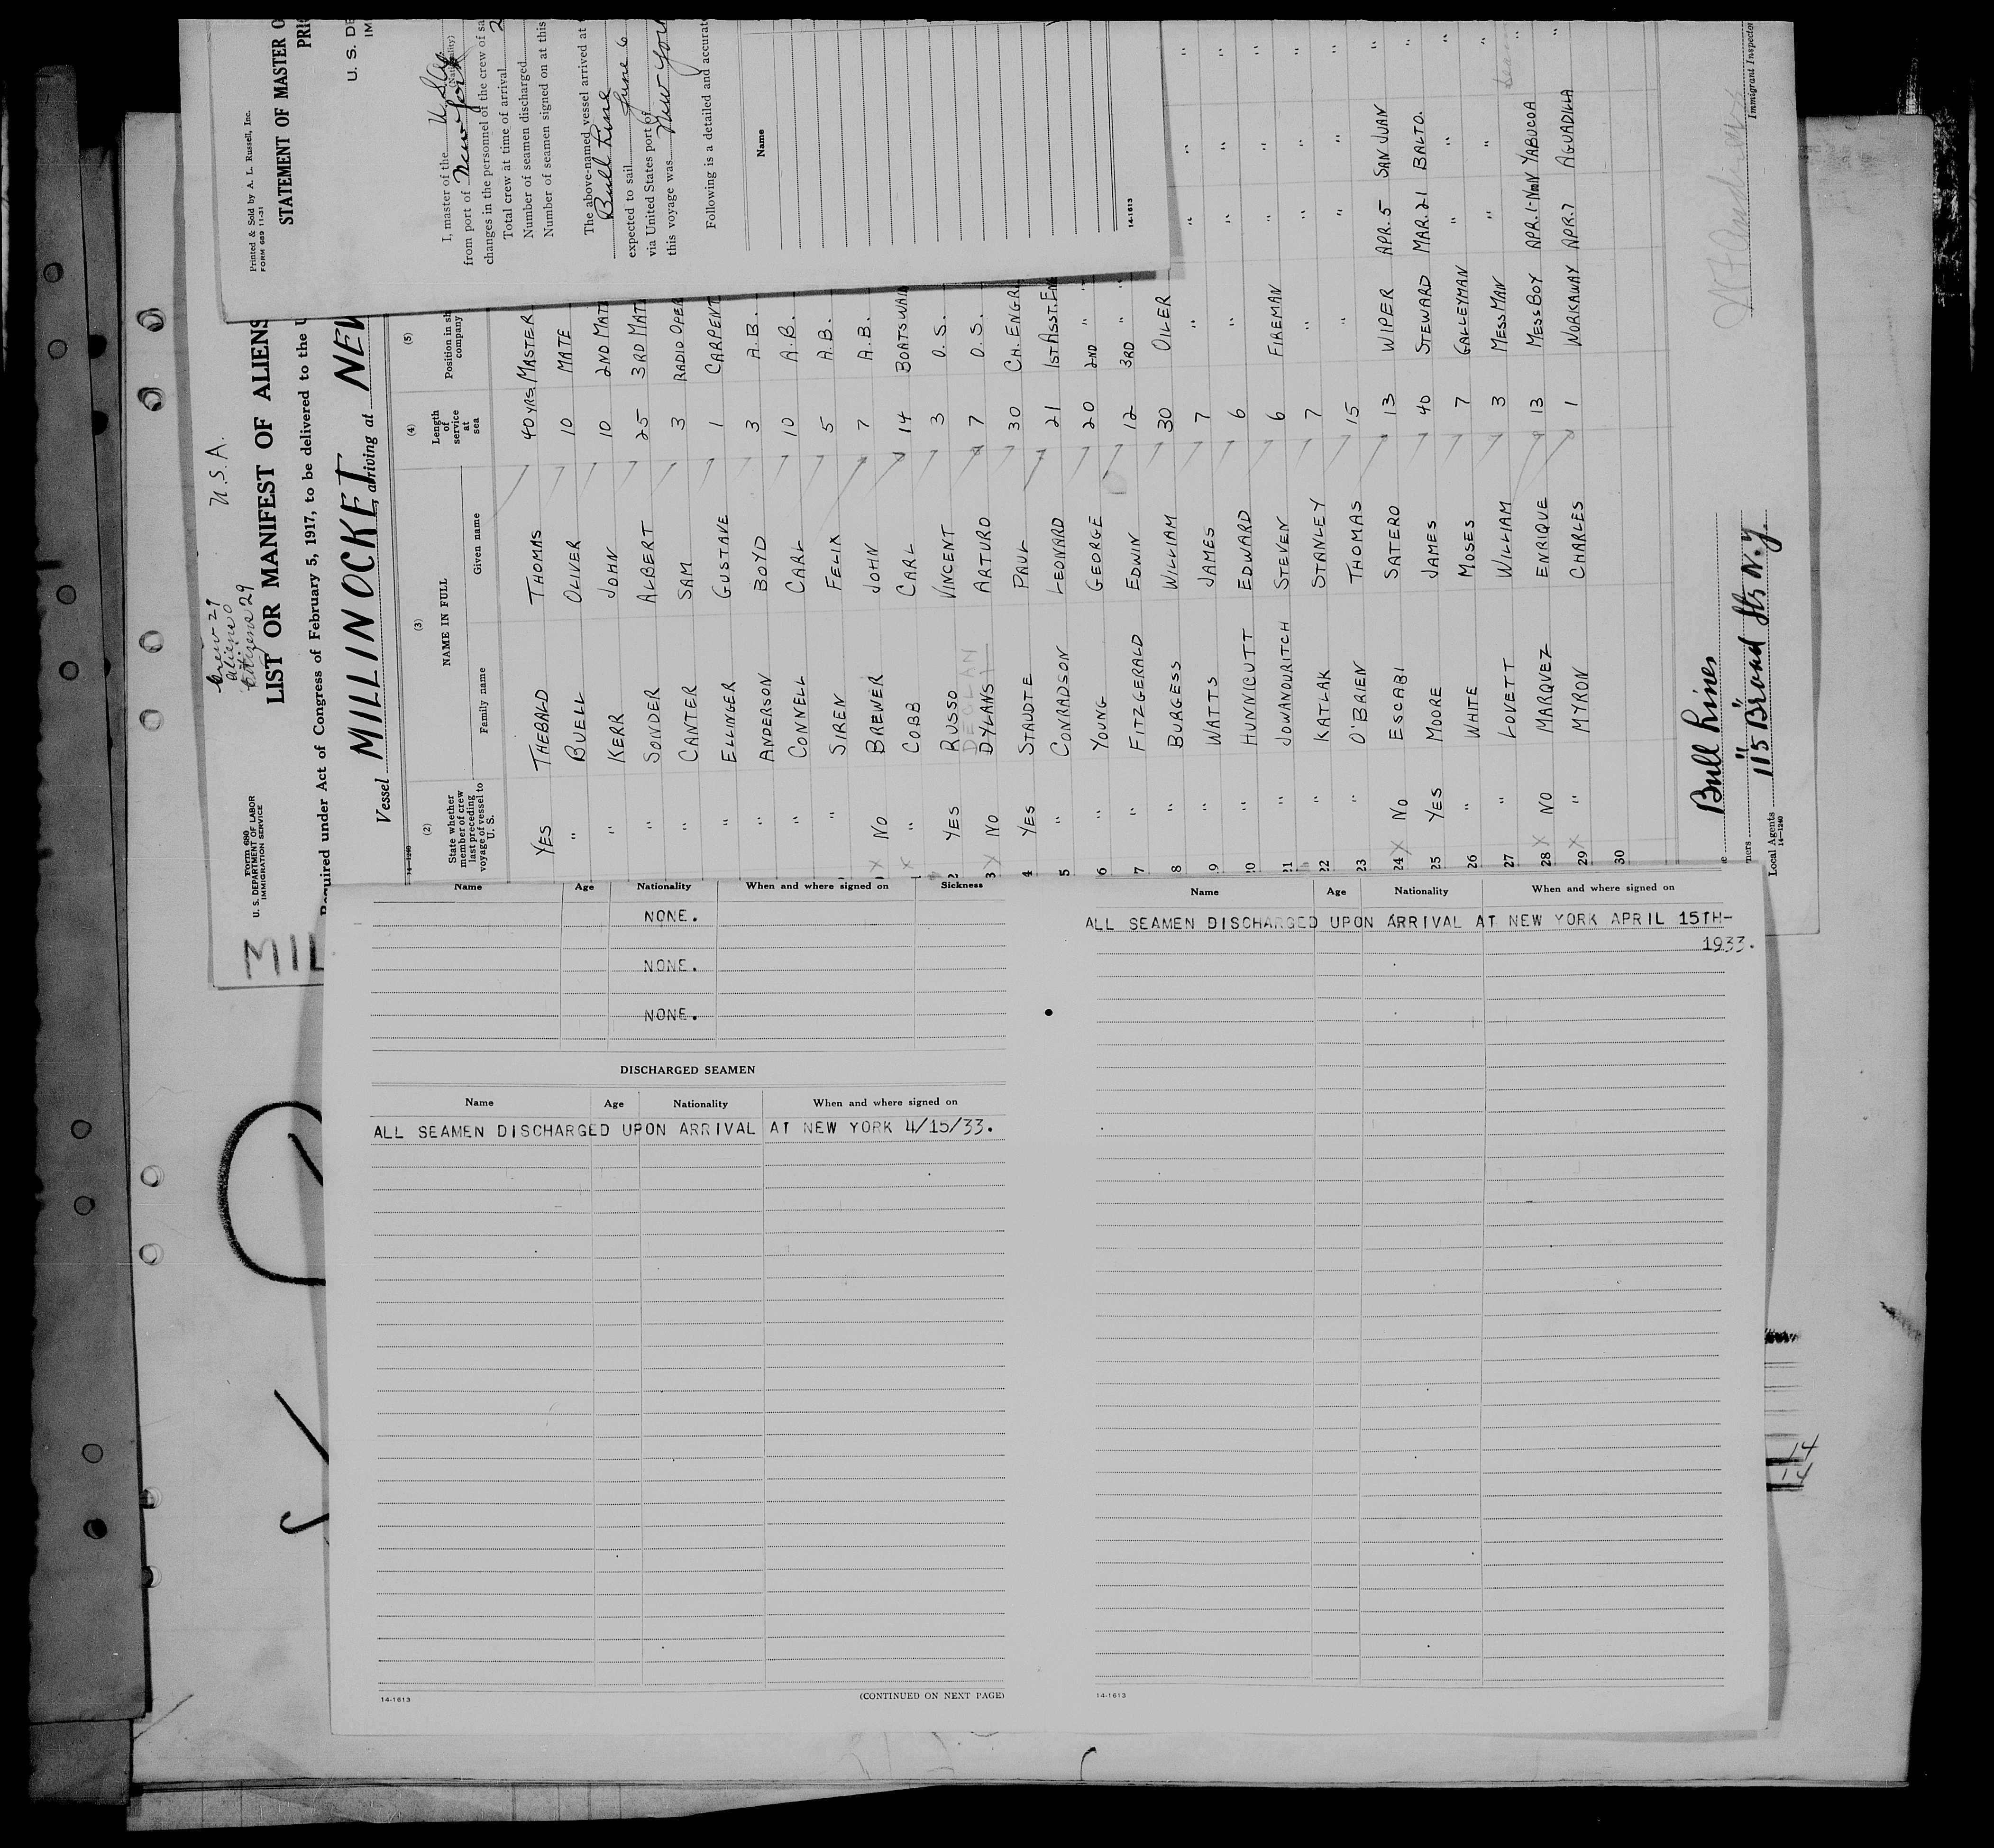 Printed & Sold by A. L. Russell, Inc.
FORM 689 11-31
STATEMENT OF MASTER O
PRI
U. S. DE
IM
I, master of the
(Nationality)
from port of New York
changes in the personnel of the crew of sa
Total crew at time of arrival 2
Number of seamen discharged
Number of seamen signed on at this
The above-named vessel arrived at
Bull Line
expected to sail June 6
via United States port of
this voyage was New York
Following is a detailed and accurat
Name
14-1613
Form 680
U. S. DEPARTMENT OF LABOR
IMMIGRATION SERVICE
MIL
Crew 29
aliens 0
Citizens 29
U.S.A.
LIST OR MANIFEST OF ALIENS
Required under Act of Congress of February 5, 1917, to be delivered to the U
Vessel MILLINOCKET, arriving at NEW
14-1240
(2) (3) (4) (5)
State whether member of crew last preceding voyage of vessel to U. S.
NAME IN FULL
Family name Given name
Length of service at sea
Position in sh
company
YES THEBALD THOMAS 40 YRS. MASTER
" BUELL OLIVER 10 MATE
" KERR JOHN 10 2ND MATE
" SONDER ALBERT 25 3RD MATE
" CANTER SAM 3 RADIO OPER
" ELLINGER GUSTAVE 1 CARPENT
" ANDERSON BOYD 3 A.B.
" CONNELL CARL 10 A.B.
" SIREN FELIX 5 A.B.
X NO BREWER JOHN 7 A.B.
X " COBB CARL 14 BOATSWAIN
2 YES RUSSO VINCENT 3 O.S.
DECLAN
3 X NO DYLANS ARTURO 7 O.S.
4 YES STAUDTE PAUL 30 CH. ENGR
5 " CONRADSON LEONARD 21 1ST ASST. ENG
6 " YOUNG GEORGE 20 2ND " "
7 " FITZGERALD EDWIN 12 3RD " "
8 " BURGESS WILLIAM 30 OILER " " "
9 " WATTS JAMES 7 " " " "
20 " HUNNICUTT EDWARD 6 " " " "
21 " JOWANOURITCH STEVEN 6 FIREMAN " " "
22 " KATLAK STANLEY 7 " " " "
23 " O'BRIEN THOMAS 15 " " " "
24 X NO ESCABI SATERO 13 WIPER APR. 5 SAN JUAN "
25 YES MOORE JAMES 40 STEWARD MAR. 21 BALTO. "
26 " WHITE MOSES 7 GALLEYMAN " " "
27 " LOVETT WILLIAM 3 MESSMAN " " "
28 X NO MARQUEZ ENRIQUE 13 MESSBOY APR. 1 YABUCOA "
29 X " MYRON CHARLES 1 WORKAWAY APR. 7 AGUADILLA "
30
Bull Lines
ners 115 Broad St. N.Y.
Local Agents
14-1240
Immigrant Inspector
Name Age Nationality When and where signed on Sickness
NONE.
NONE.
NONE.
DISCHARGED SEAMEN
Name Age Nationality When and where signed on
ALL SEAMEN DISCHARGED UPON ARRIVAL AT NEW YORK 4/15/33.
14-1613 (CONTINUED ON NEXT PAGE)
Name Age Nationality When and where signed on
ALL SEAMEN DISCHARGED UPON ARRIVAL AT NEW YORK APRIL 15TH-
1933.
14-1613
14
14